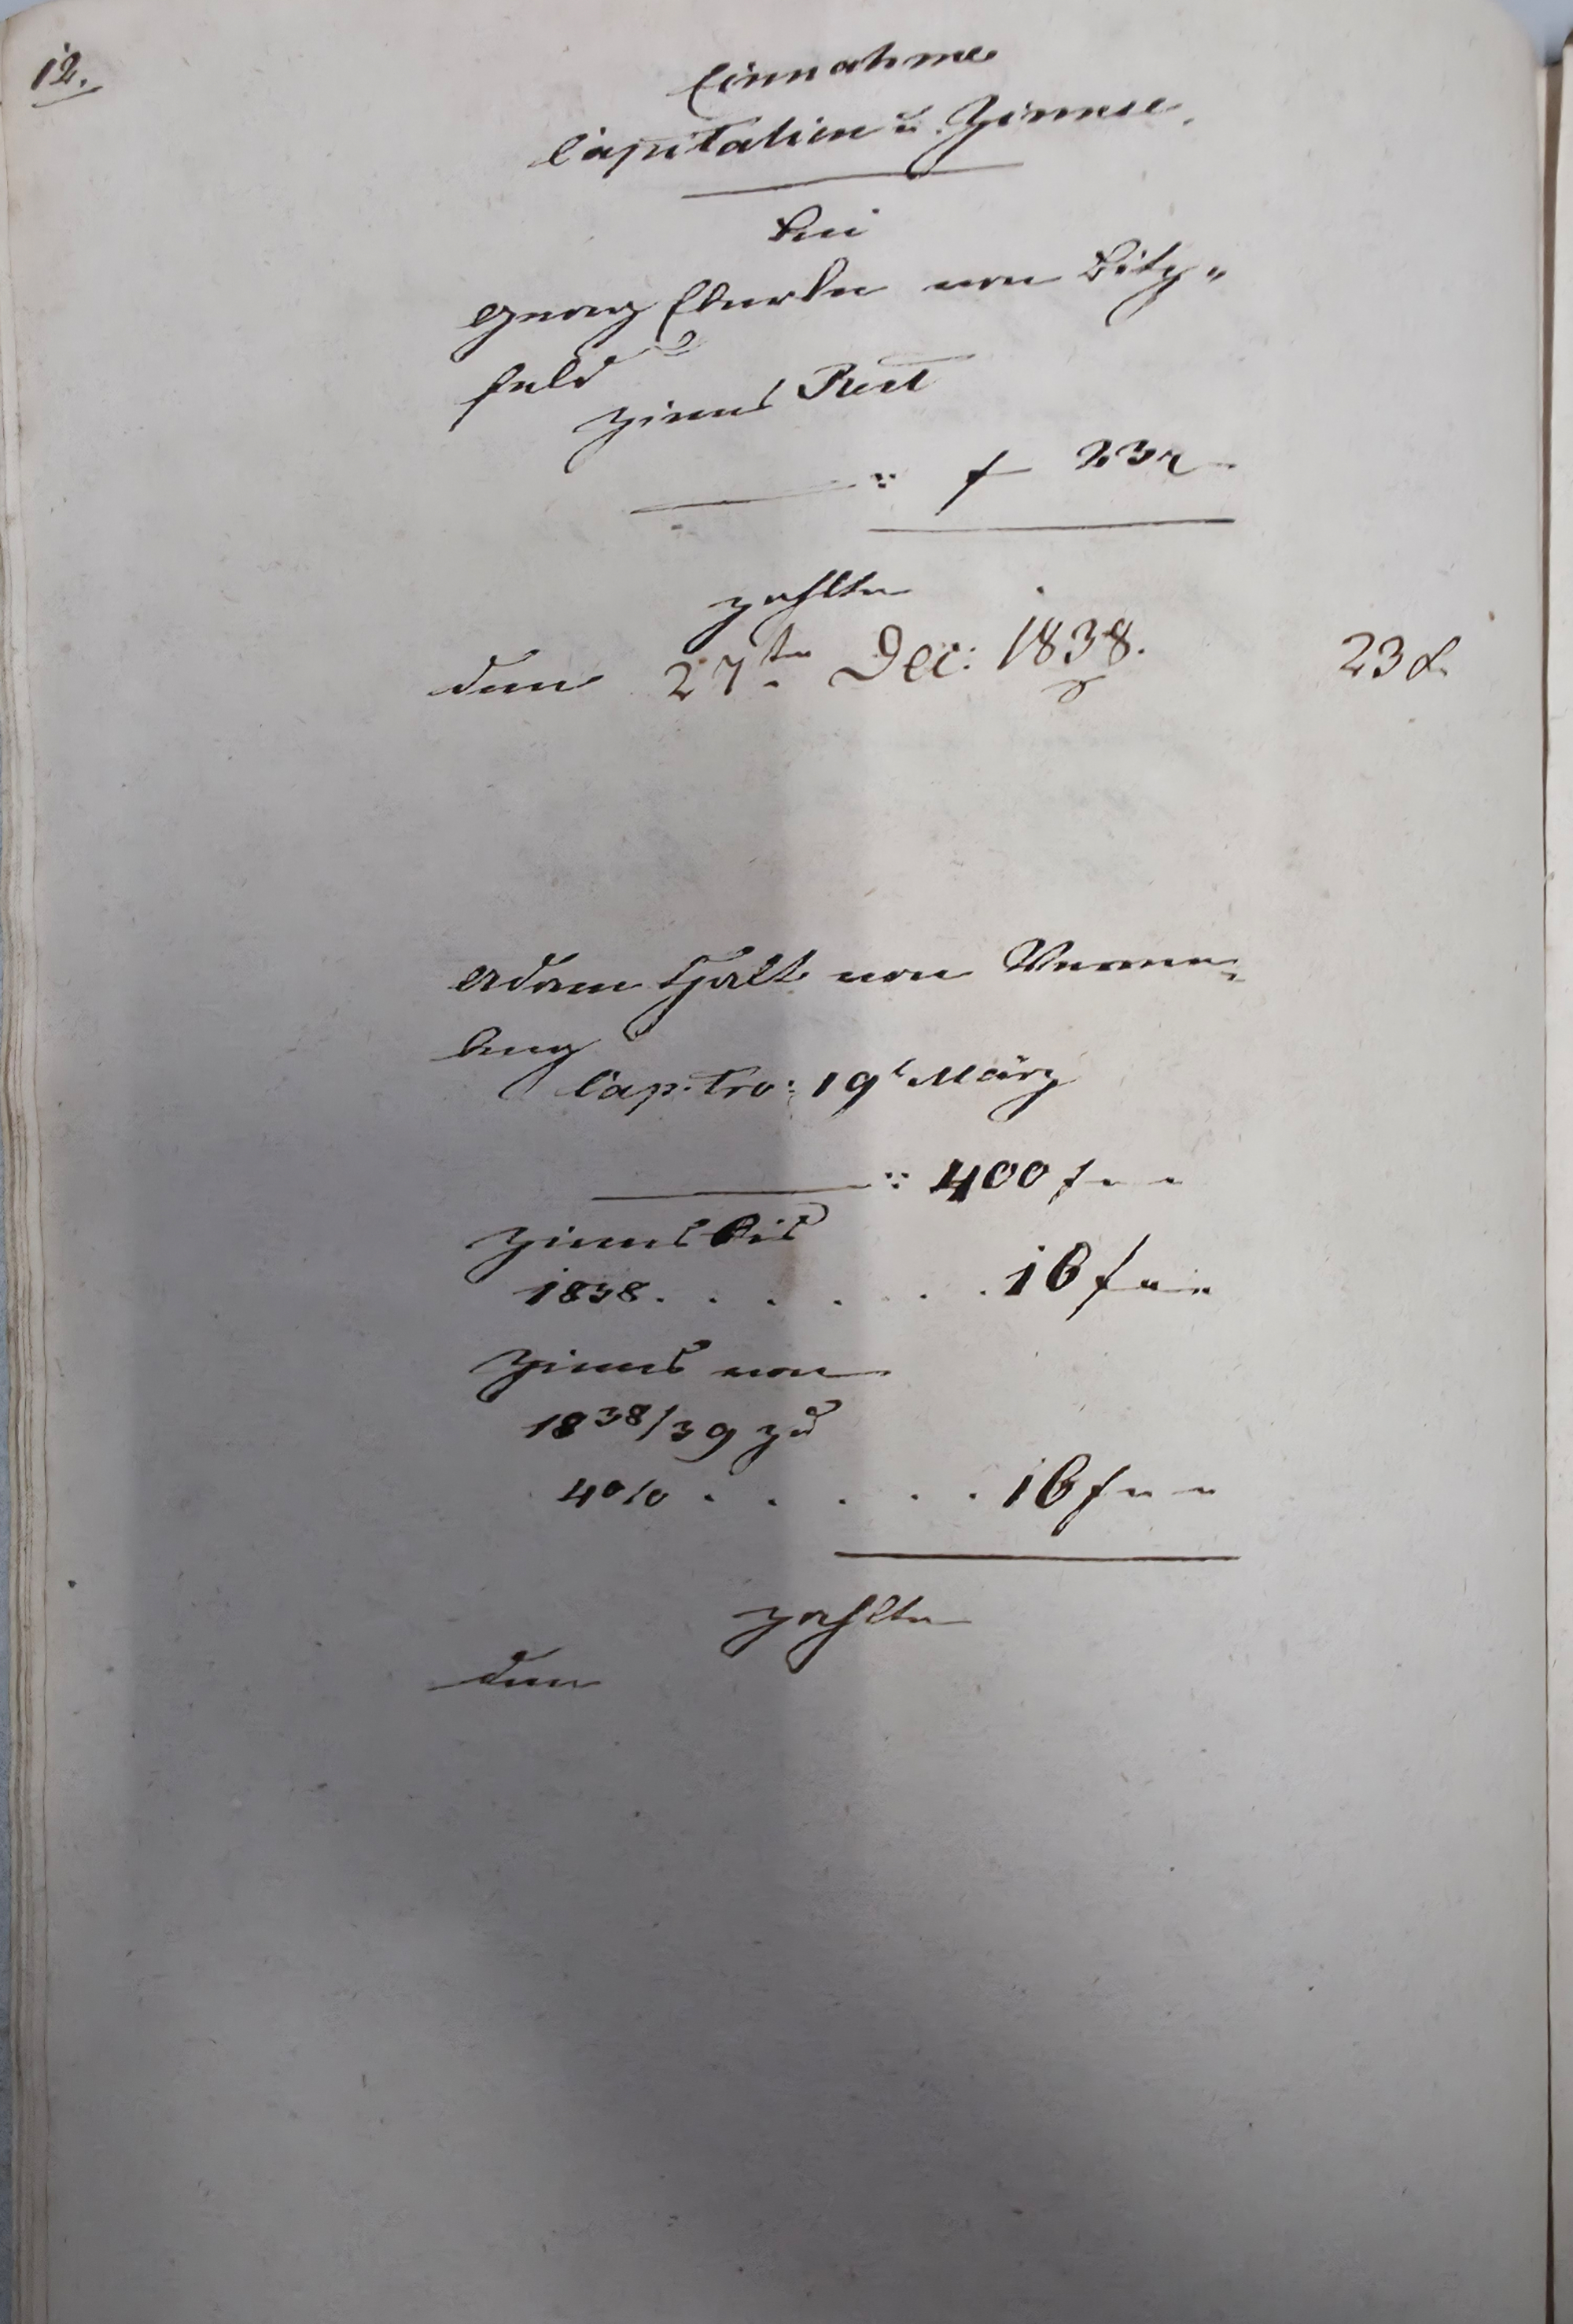 12.
Einnahme
Capitalien u. Zinnse.
bei
Georg Eberle von Bitz„
feld
Zinns Rest
: f 23 x
zahlte
den 27ten Dec: 1838. 23 x.
Adam von
berg
Capito: 19t März
: 400 f „ „
Zinns bis
1838. . . . . . . 16 f „ „
Zinns von
1838/39 zu
4 0/0 . . . . . 16 f „ „
zahlte
den